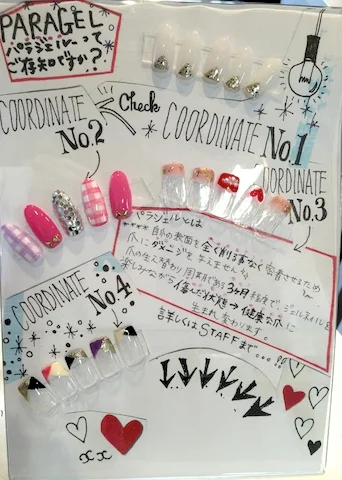 PARAGEL
パラジェルって
ご存知ですか?
Check
COORDINATE
No.1
COORDINATE
No.2
COORDINATE
No.3
パラジェルとは
自爪の表面を全く削る事なく密着させるため
爪にダメージを与えません。
爪の生え替わり周期である3ヵ月程度で、ジェルネイルを
楽しみながら傷んだ状態→健康な爪に
生まれ変わります。
詳しくはSTAFFまで...!!
COORDINATE
No.4
xx